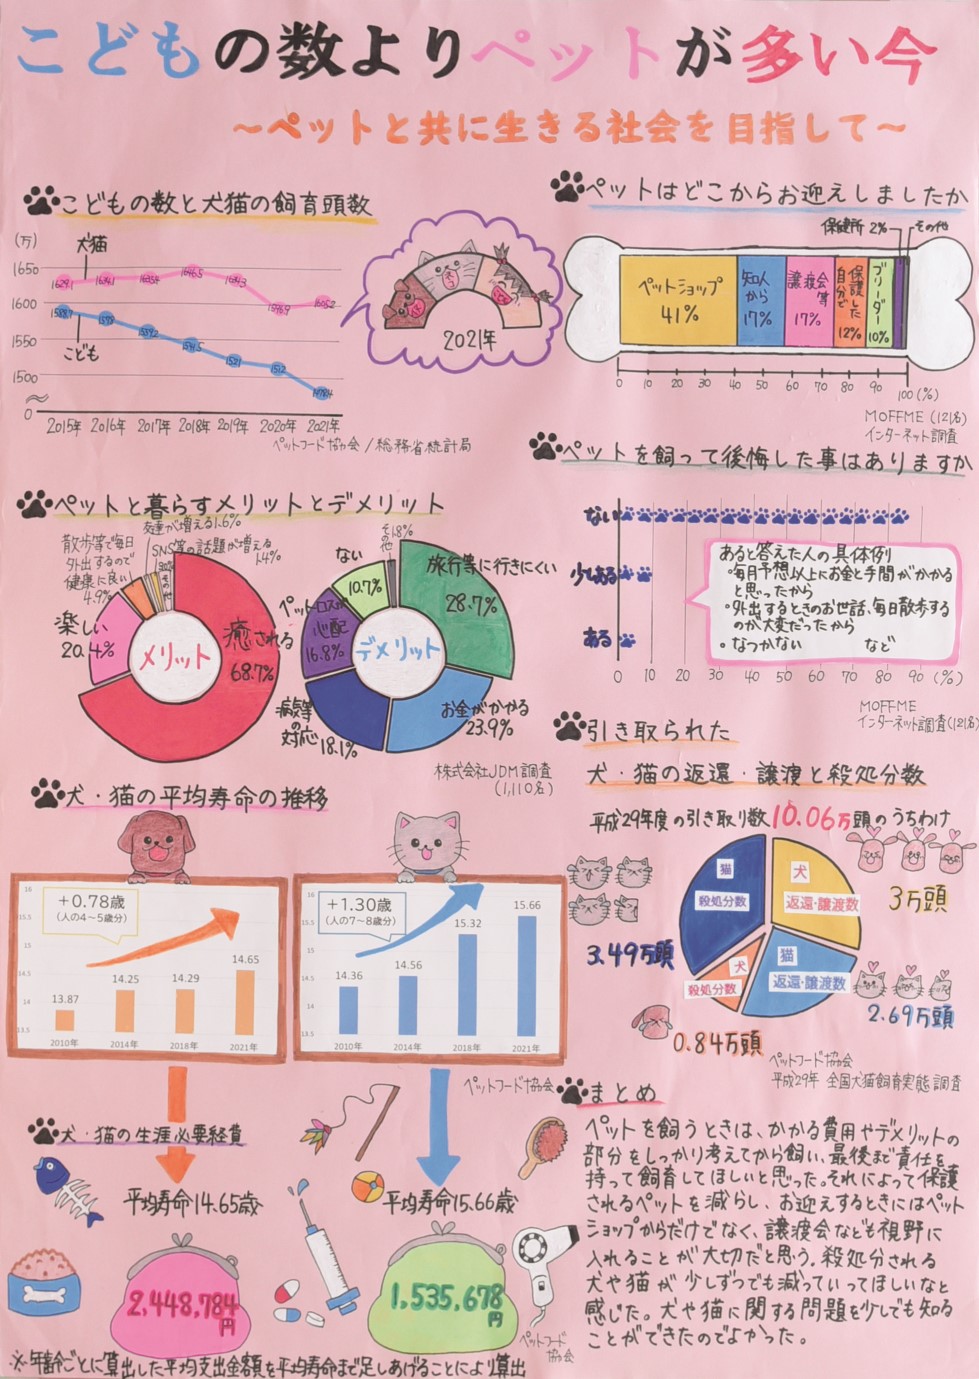 こどもの数よりペットが多い今
～ペットと共に生きる社会を目指して～
こどもの数と犬猫の飼育頭数
(万)
犬猫
1650
1600
1550
1500
0
こども
2015年 2016年 2017年 2018年 2019年 2020年 2021年
ペットフード協会/総務省統計局
2021年
ペットはどこからお迎えしましたか
保健所 2%
その他
ペットショップ 41%
知人から 17%
譲渡会等 17%
自分で保護した 12%
ブリーダー 10%
0 10 20 30 40 50 60 70 80 90 100 (%)
MOFFME (121名)
インターネット調査
ペットを飼って後悔した事はありますか
ない
少しある
ある
あると答えた人の具体例
・毎月予想以上にお金と手間がかかる
と思ったから
・外出するときのお世話、毎日散歩する
のが大変だったから
・なつかない など
0 10 20 30 40 50 60 70 80 90 (%)
MOFFME
インターネット調査(121名)
ペットと暮らすメリットとデメリット
友達が増える1.6%
SNS等の話題が増える
1.4%
その他
散歩等で毎日
外出するので
健康に良い
4.9%
楽しい
20.4%
癒される
68.7%
メリット
その他
1.8%
ない
10.7%
ペットロスが
心配
16.8%
病気等
の
対応
18.1%
お金がかかる
23.9%
旅行等に行きにくい
28.7%
デメリット
株式会社JDM調査
(1,110名)
犬・猫の平均寿命の推移
＋0.78歳
(人の4～5歳分)
16
15.5
15
14.5
14
13.5
13.87
14.25
14.29
14.65
2010年 2014年 2018年 2021年
＋1.30歳
(人の7～8歳分)
14.36
14.56
15.32
15.66
2010年 2014年 2018年 2021年
ペットフード協会
引き取られた
犬・猫の返還・譲渡と殺処分数
平成29年度の引き取り数10.06万頭のうちわけ
猫
殺処分数
3.49万頭
犬
返還・譲渡数
3万頭
犬
殺処分数
0.84万頭
猫
返還・譲渡数
2.69万頭
ペットフード協会
平成29年 全国犬猫飼育実態調査
犬・猫の生涯必要経費
平均寿命14.65歳
2,448,784
円
平均寿命15.66歳
1,535,678
円
ペットフード
協会
※年齢ごとに算出した平均支出金額を平均寿命まで足しあげることにより算出
まとめ
ペットを飼うときは、かかる費用やデメリットの
部分をしっかり考えてから飼い、最後まで責任を
持って飼育してほしいと思った。それによって保護
されるペットを減らし、お迎えするときにはペット
ショップからだけでなく、譲渡会なども視野に
入れることが大切だと思う。殺処分される
犬や猫が少しずつでも減っていってほしいなと
感じた。犬や猫に関する問題を少しでも知る
ことができたのでよかった。